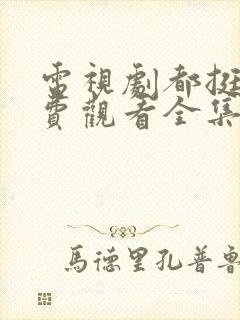 電視劇都挺
費觀看全集
馬德里孔普魯